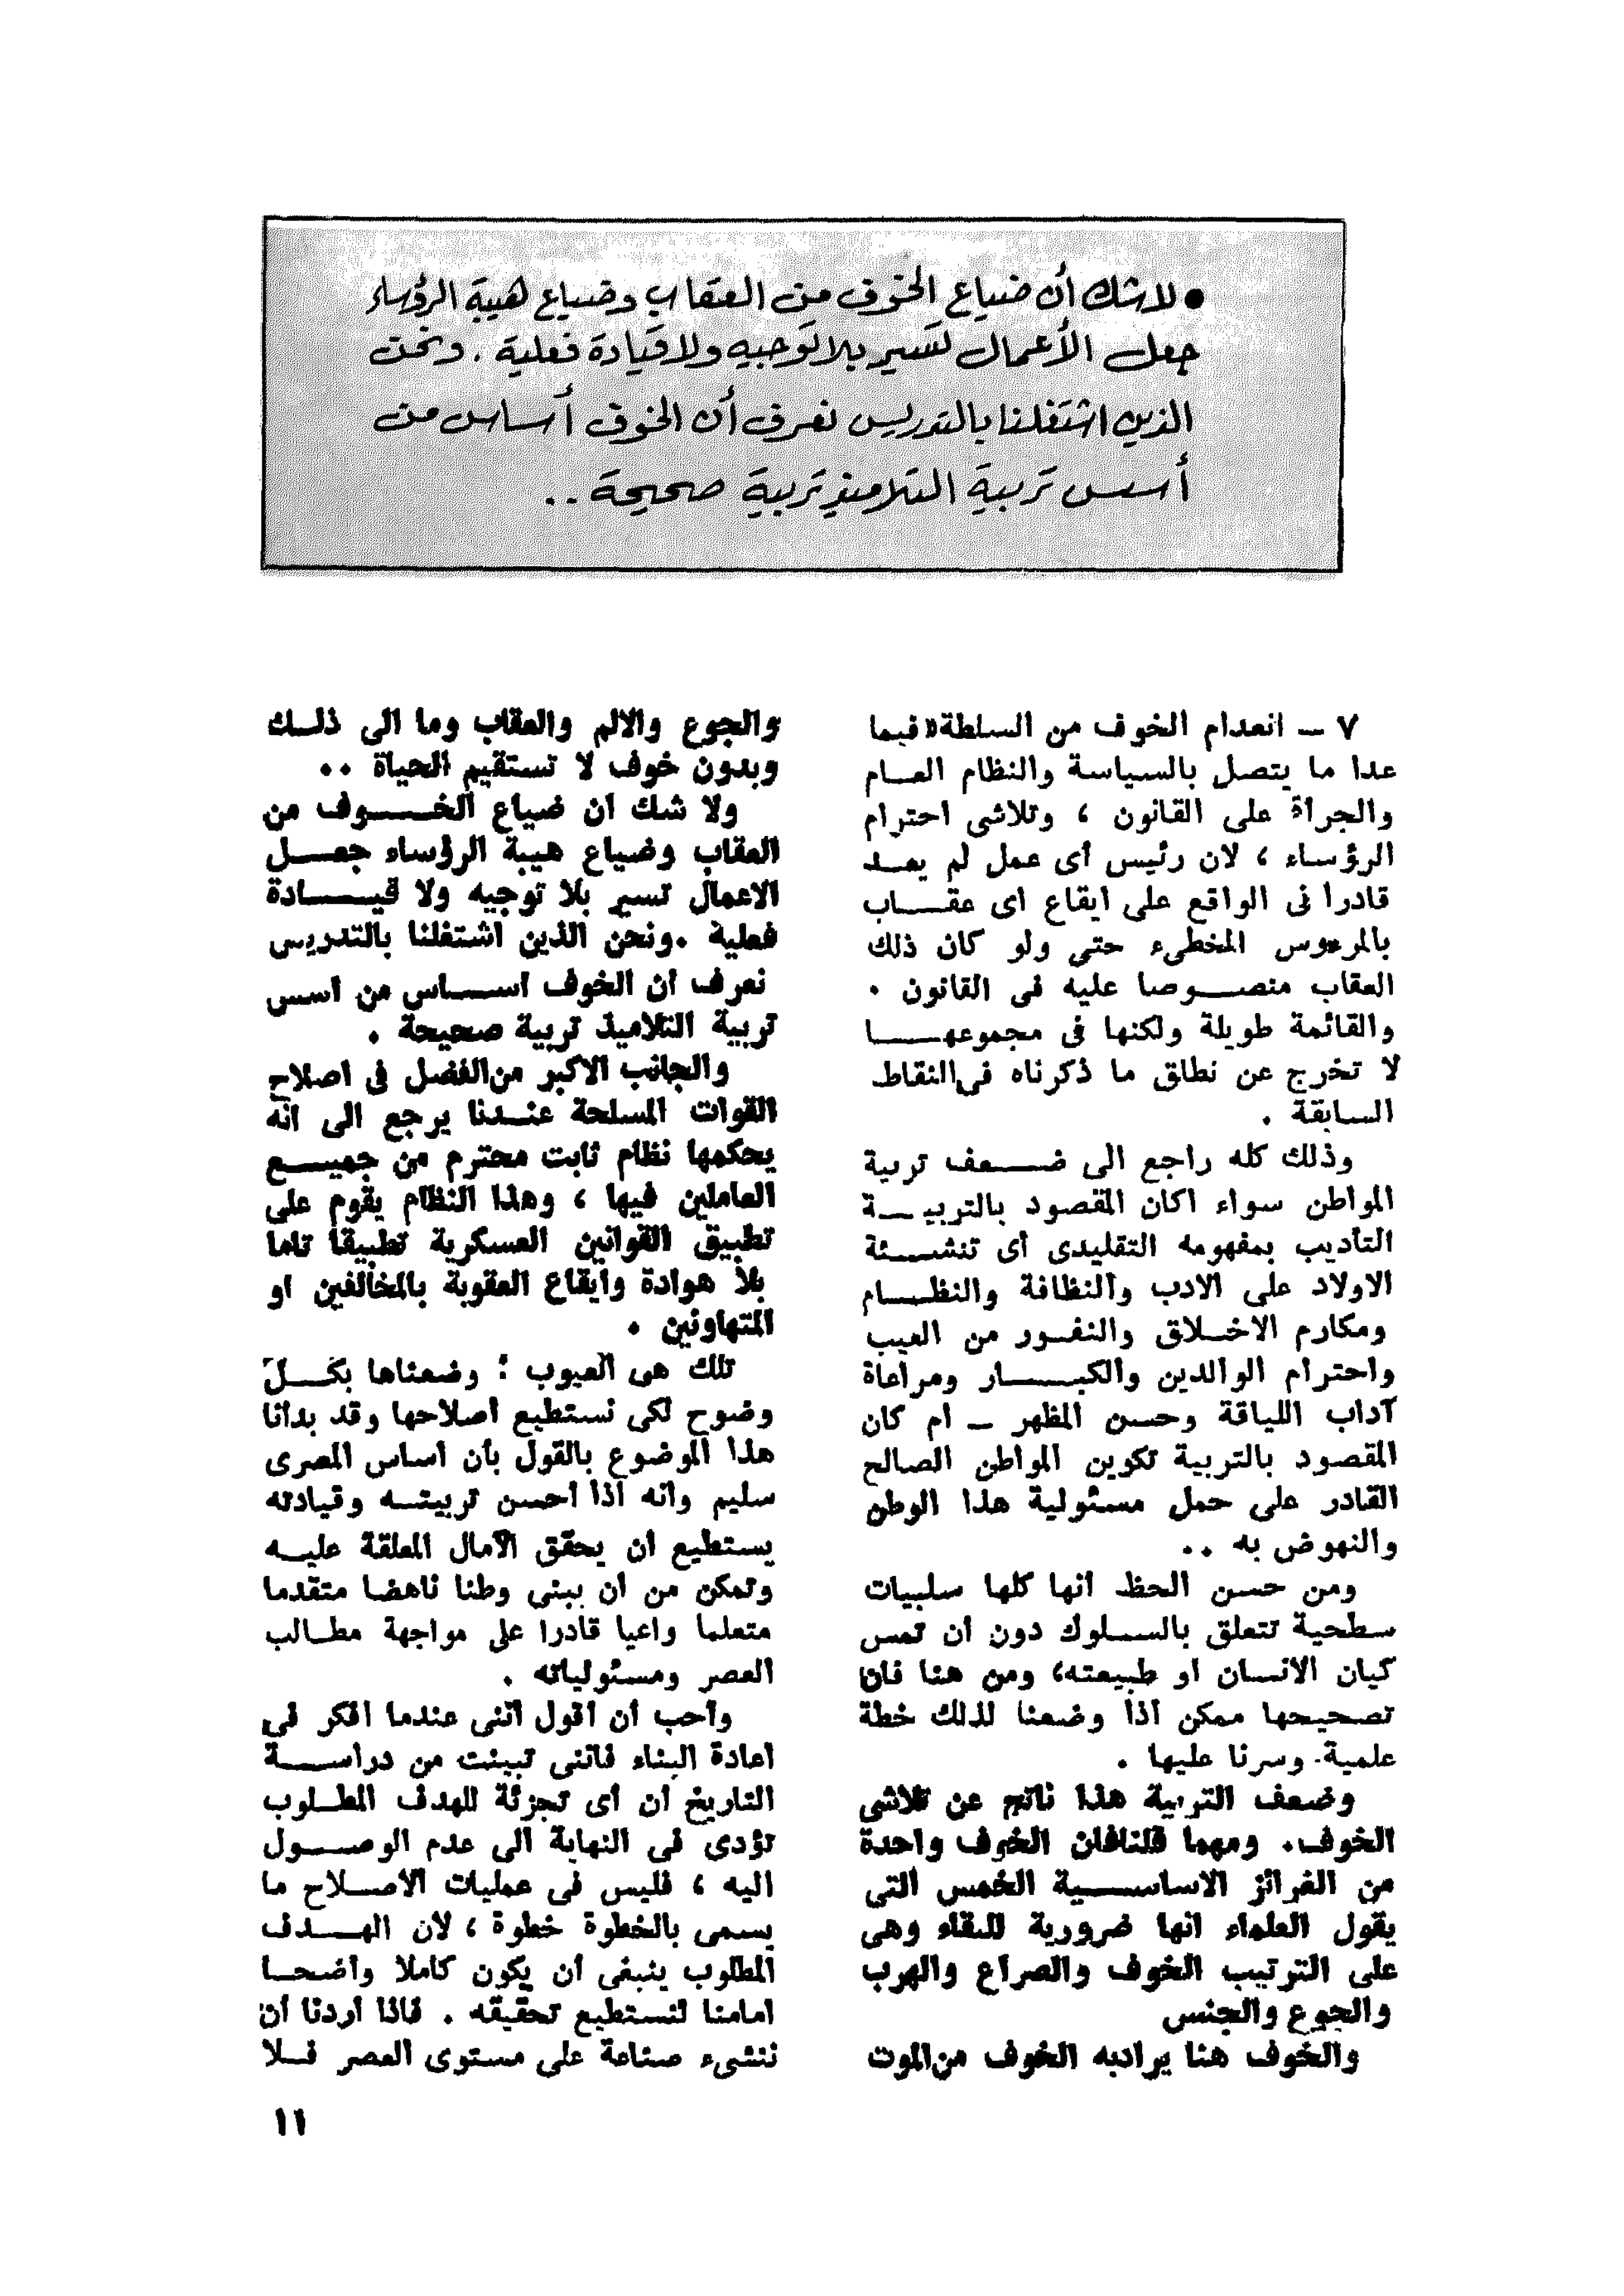 • لاشك أن ضياع الخوف من العقاب وضياع هيبة الرؤساء
جعل الأعمال تسير بلا توجيه ولا قيادة فعلية . ونحن
الذين اشتغلنا بالتدريس نعرف أن الخوف أساس من
أسس تربية التلاميذ تربية صحيحة ..
٧ — انعدام الخوف من السلطة «فيما
عدا ما يتصل بالسياسة والنظام العام
والجرأة على القانون ، وتلاشى احترام
الرؤساء ، لان رئيس أى عمل لم يعد
قادرا فى الواقع على ايقاع اى عقاب
بالمرءوس المخطىء حتى ولو كان ذلك
العقاب منصوصا عليه فى القانون .
والقائمة طويلة ولكنها فى مجموعها
لا تخرج عن نطاق ما ذكرناه فى النقاط
السابقة .
وذلك كله راجع الى ضعف تربية
المواطن سواء اكان المقصود بالتربية
التأديب بمفهومه التقليدى أى تنشئة
الاولاد على الادب والنظافة والنظام
ومكارم الاخلاق والنفور من العيب
واحترام الوالدين والكبار ومراعاة
آداب اللياقة وحسن المظهر — أم كان
المقصود بالتربية تكوين المواطن الصالح
القادر على حمل مسئولية هذا الوطن
والنهوض به ..
ومن حسن الحظ انها كلها سلبيات
سطحية تتعلق بالسلوك دون أن تمس
كيان الانسان او طبيعته، ومن هنا فان
تصحيحها ممكن اذا وضعنا لذلك خطة
علمية. وسرنا عليها .
وضعف التربية هذا ناتج عن تلاشى
الخوف. ومهما قلنا فان الخوف واحدة
من الغرائز الاساسية الخمس التى
يقول العلماء انها ضرورية للبقاء وهى
على الترتيب الخوف والصراع والهرب
والجوع والجنس
والخوف هنا يراد به الخوف من الموت
والجوع والالم والعقاب وما الى ذلك
وبدون خوف لا تستقيم الحياة ..
ولا شك ان ضياع الخوف من
العقاب وضياع هيبة الرؤساء جعل
الاعمال تسير بلا توجيه ولا قيادة
فعلية .ونحن الذين اشتغلنا بالتدريس
نعرف ان الخوف اساس من اسس
تربية التلاميذ تربية صحيحة .
والجانب الاكبر من الفضل فى اصلاح
القوات المسلحة عندنا يرجع الى انه
يحكمها نظام ثابت محترم من جميع
العاملين فيها ، وهذا النظام يقوم على
تطبيق القوانين العسكرية تطبيقا تاما
بلا هوادة وايقاع العقوبة بالمخالفين او
المتهاونين .
تلك هى العيوب : وضعناها بكل
وضوح لكى نستطيع اصلاحها وقد بدأنا
هذا الموضوع بالقول بأن اساس المصرى
سليم وانه اذا احسن تربيته وقيادته
يستطيع ان يحقق الآمال المعلقة عليه
وتمكن من أن يبنى وطنا ناهضا متقدما
متعلما واعيا قادرا على مواجهة مطالب
العصر ومسئولياته .
وأحب أن أقول اننى عندما افكر فى
اعادة البناء فاننى تبينت من دراسة
التاريخ أن أى تجزئة للهدف المطلوب
تؤدى فى النهاية الى عدم الوصول
اليه ، فليس فى عمليات الاصلاح ما
يسمى بالخطوة خطوة ، لان الهدف
المطلوب ينبغى أن يكون كاملا واضحا
امامنا لنستطيع تحقيقه . فاذا أردنا أن
ننشىء صناعة على مستوى العصر فلا
١١